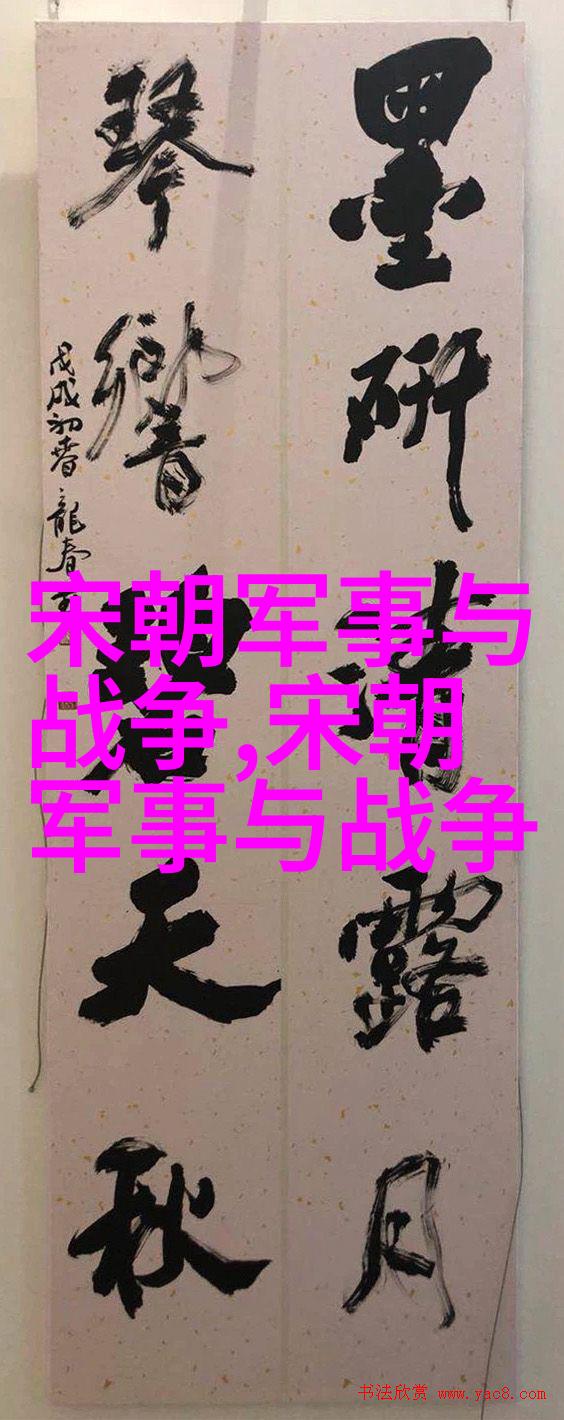 墨研清露月
琴響碧天秋
戊戌初春龍春
宋朝军事与
战争,宋朝
军事与战争
书法欣赏 www.yac8.com